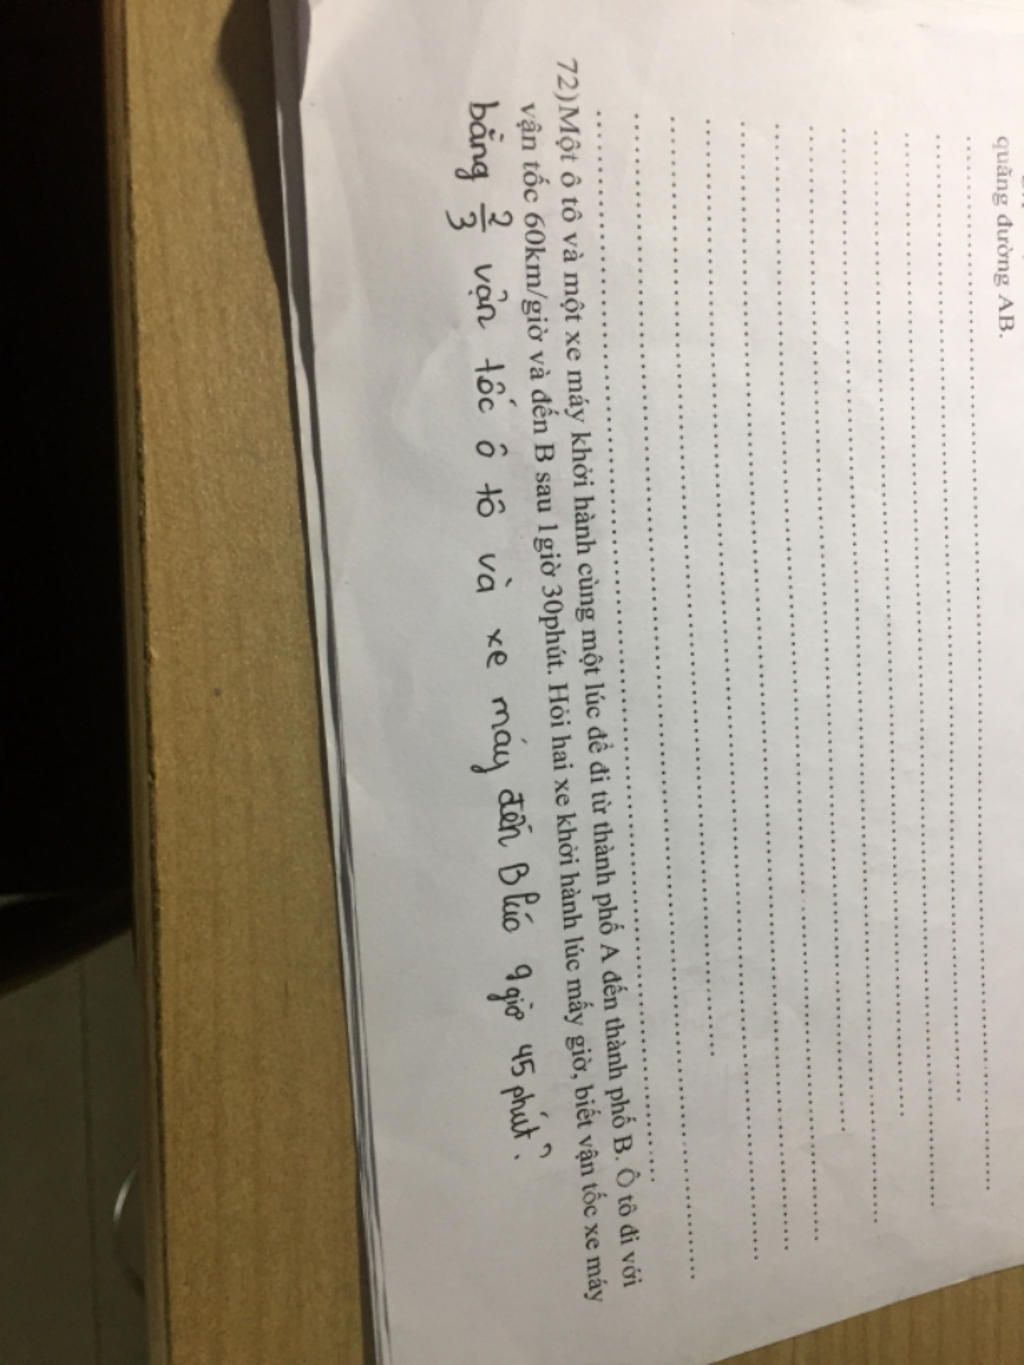 quãng đường AB.
72)Một ô tô và một xe máy khởi hành cùng một lúc để đi từ thành phố A đến thành phố B. Ô tô đi với
vận tốc 60km/giờ và đến B sau 1giờ 30phút. Hỏi hai xe khởi hành lúc mấy giờ, biết vận tốc xe máy
bằng 2/3 vận tốc ô tô và xe máy đến B lúc 9 giờ 45 phút.